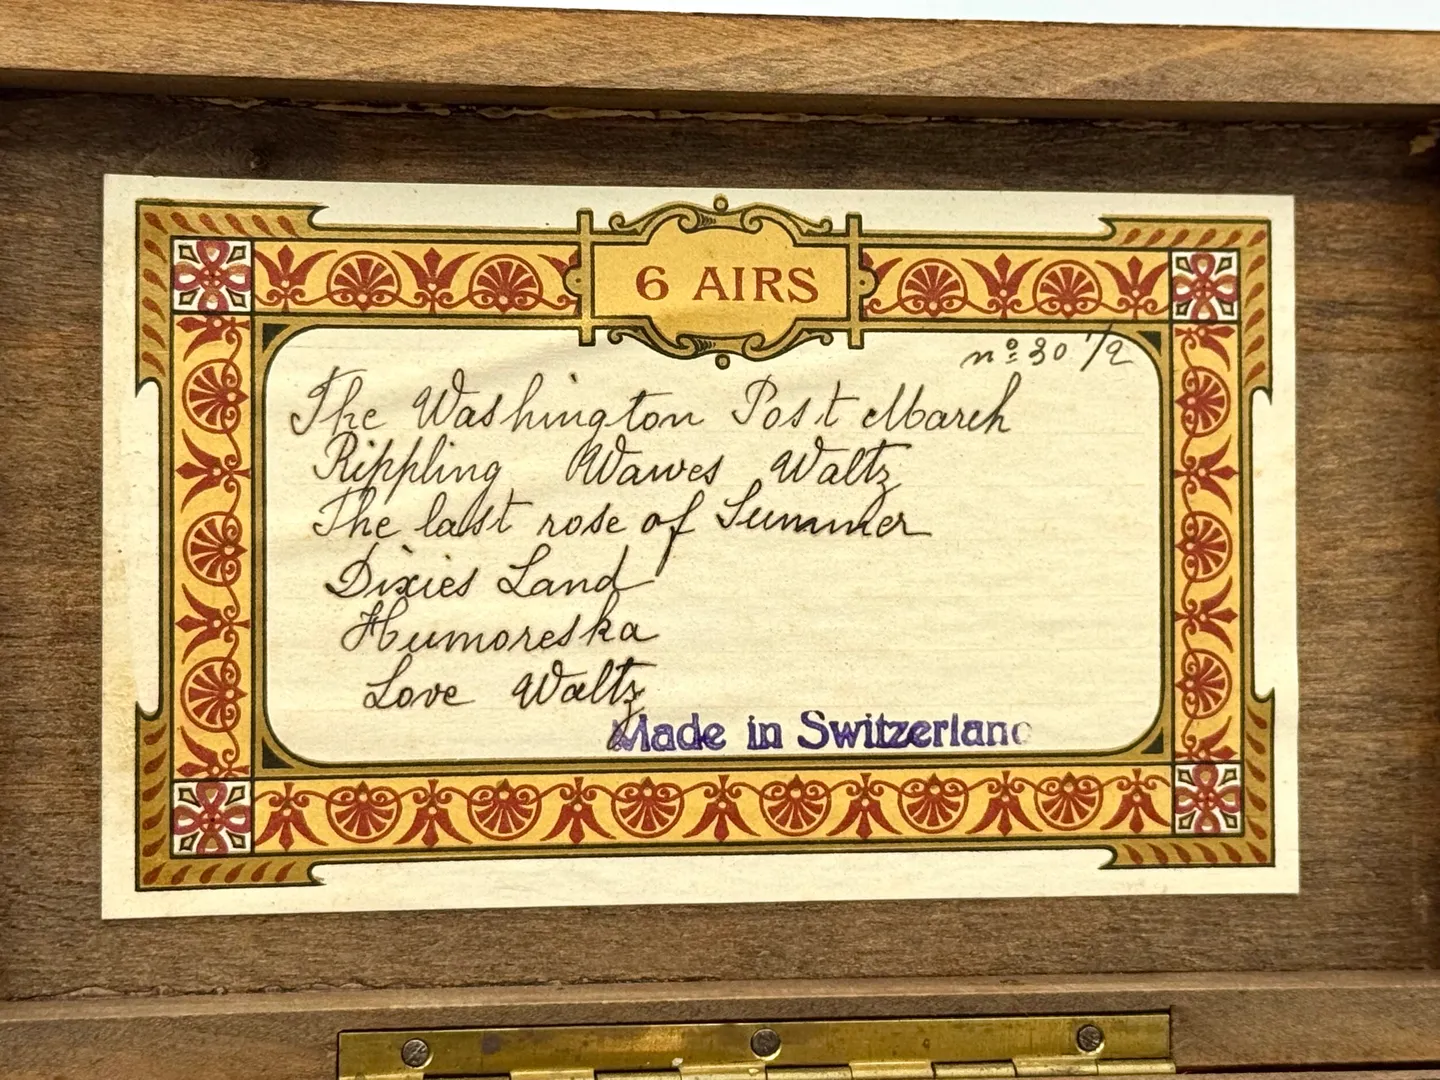 6 AIRS
nº 30 1/2
The Washington Post March
Rippling Wawes Waltz
The last rose of Summer
Dixies Land
Humoreska
Love Waltz
Made in Switzerland